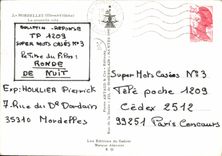 BULLETIN-RÉPONSE
TP 1209
SUPER MOTS CASÉS N°3
Le Titre du Film:
RONDE
DE NUIT
Exp: HOULIER Pierrick
7, Rue du Dr Dordain
35310 Mordelles
Super Mots Casés N°3
Télé poche 1209
Cédex 2512
99251 Paris Concours
Les Editions du Gabier